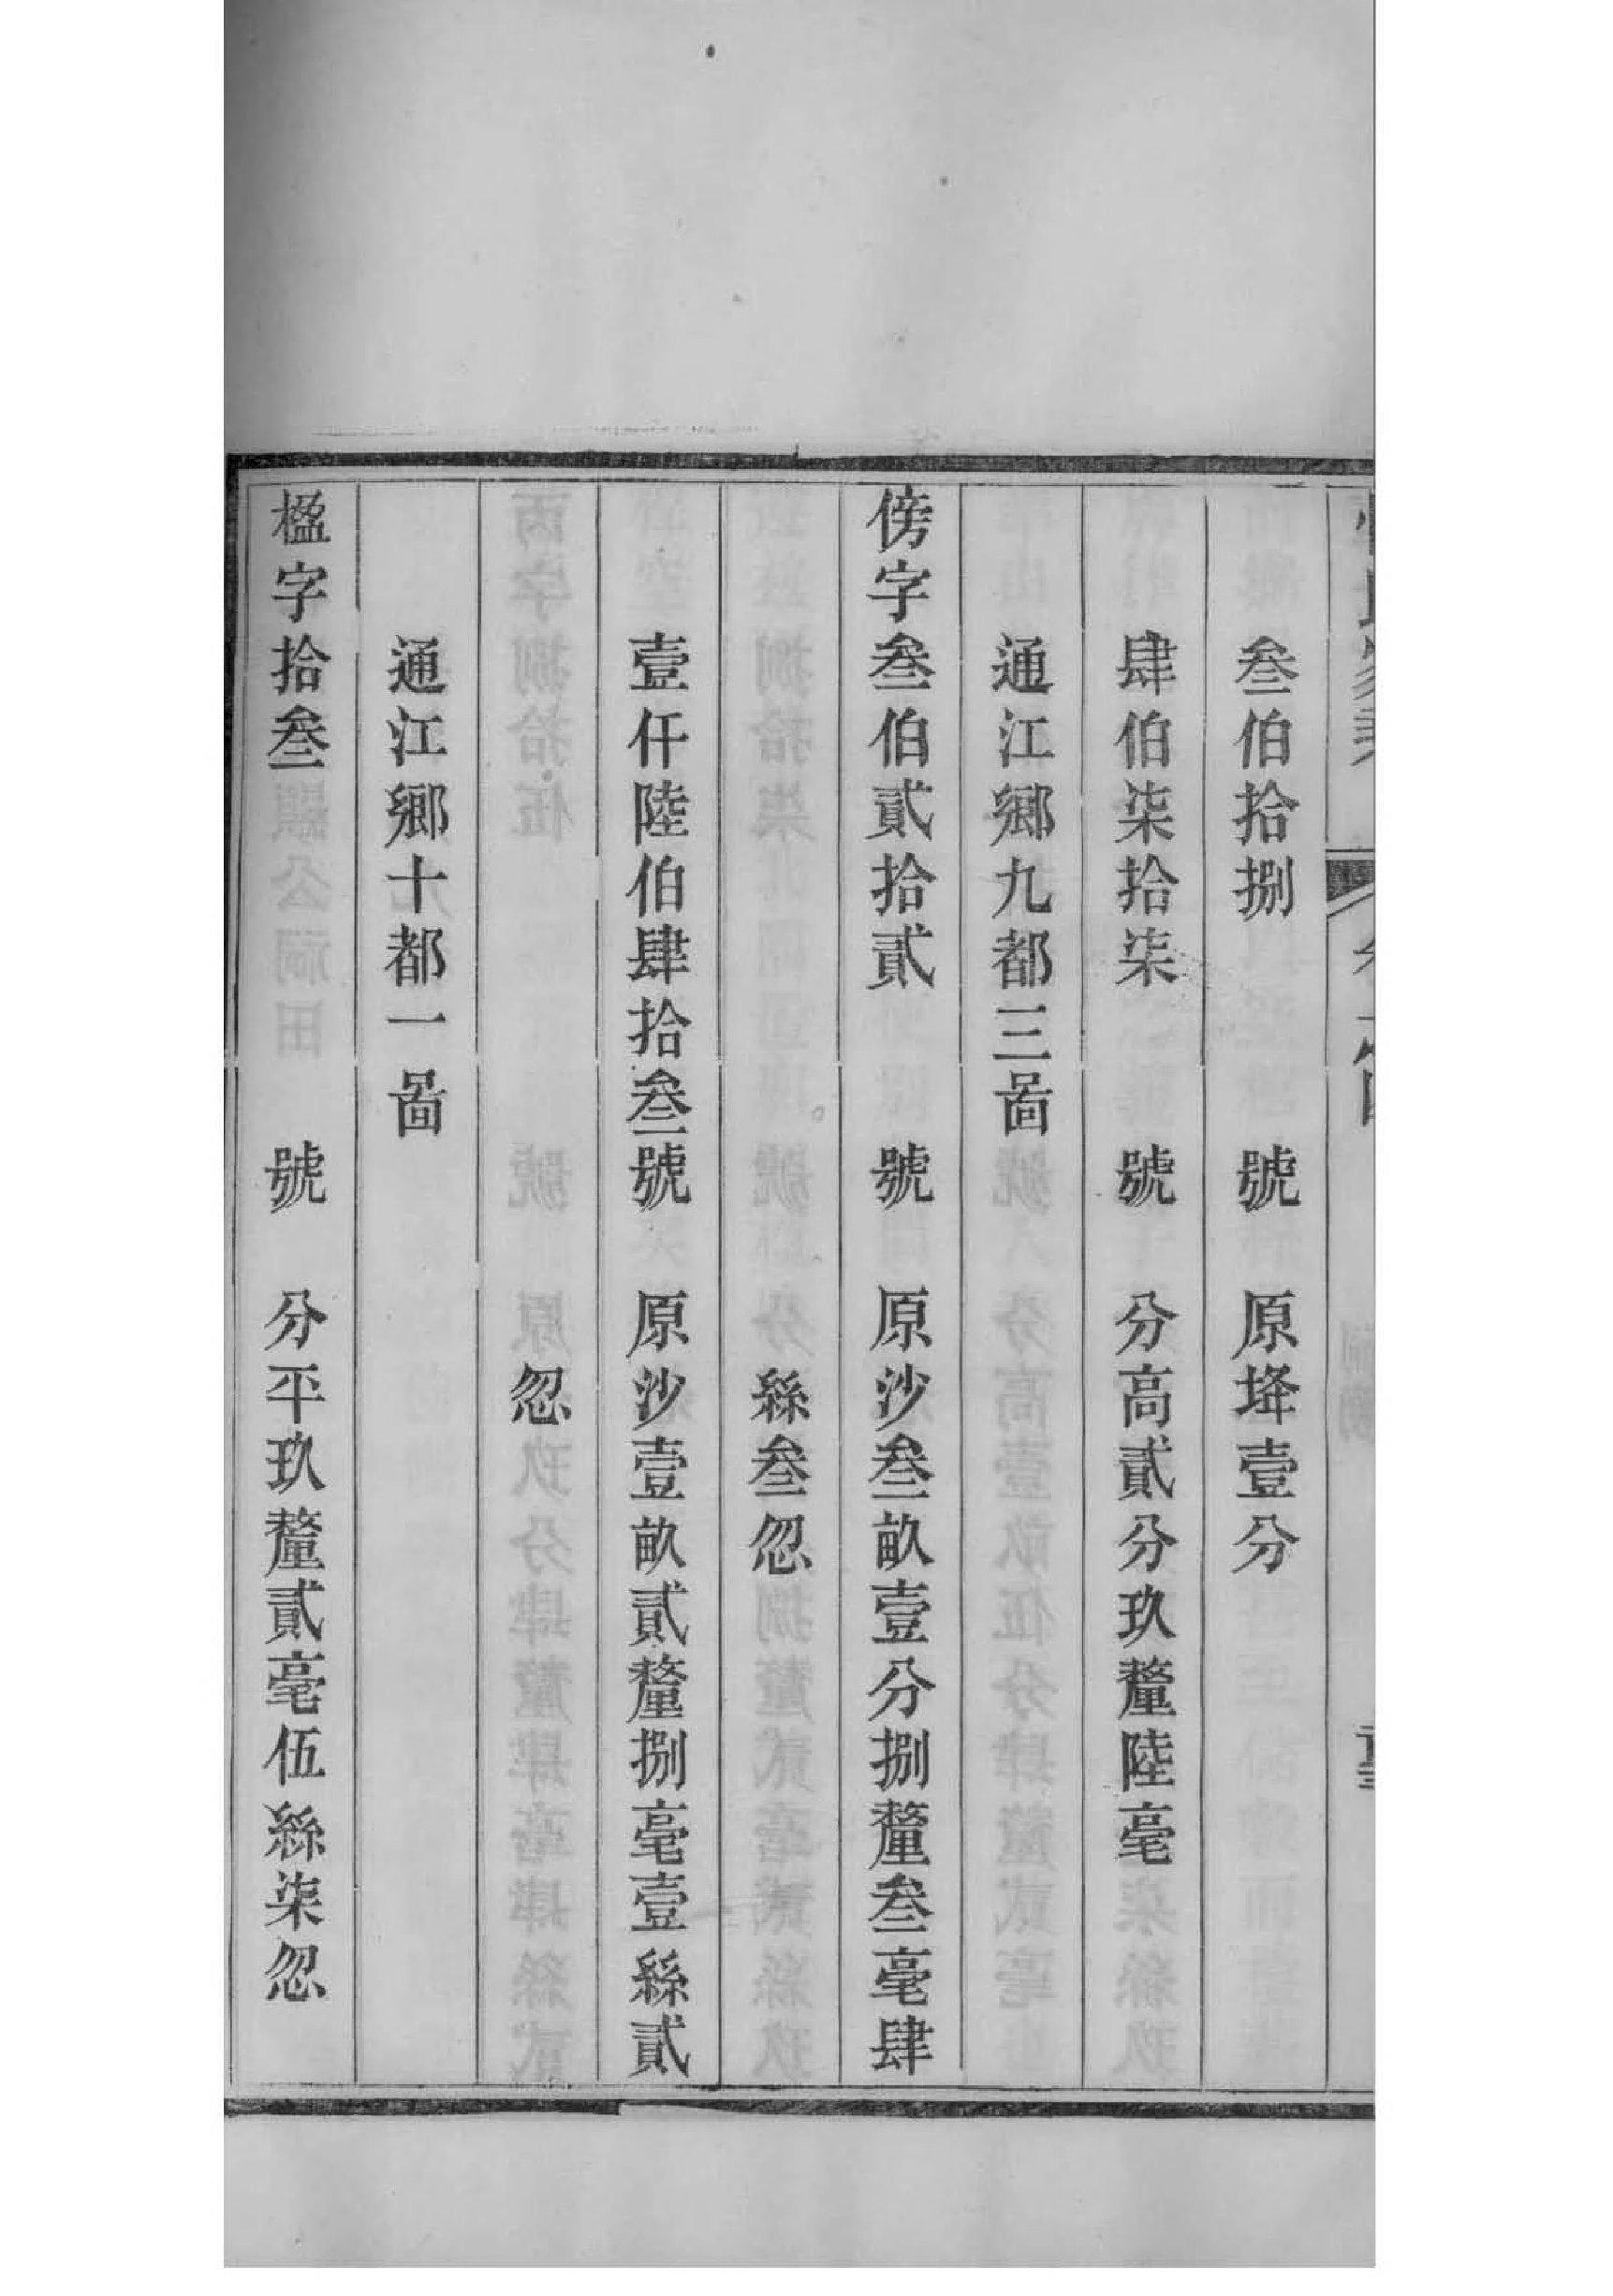 叄伯拾捌 號 原埄壹分
肆伯柒拾柒 號 分高貳分玖釐陸毫
通江鄉九都三啚
傍字叄伯貳拾貳 號 原沙叄畝壹分捌釐叄毫肆
絲叄忽
壹仟陸伯肆拾叄號 原沙壹畝貳釐捌毫壹絲貳
忽
通江鄉十都一啚
楹字拾叄 號 分平玖釐貳毫伍絲柒忽